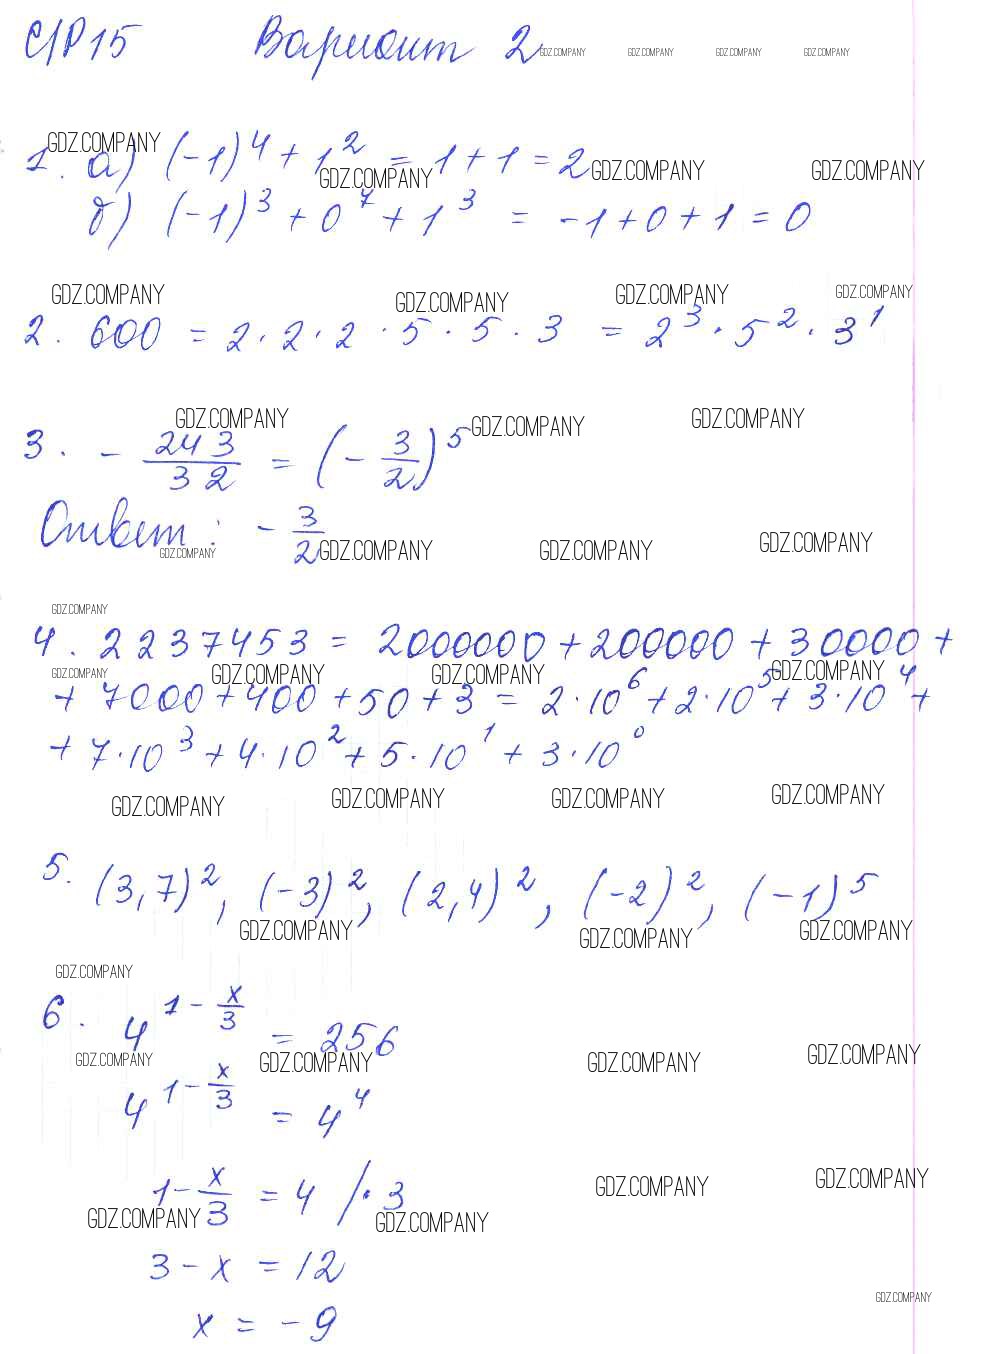 С/Р 15 Вариант 2
GDZ.COMPANY GDZ.COMPANY GDZ.COMPANY GDZ.COMPANY
GDZ.COMPANY
1. а) (-1)^4 + 1^2 = 1 + 1 = 2
GDZ.COMPANY GDZ.COMPANY GDZ.COMPANY
б) (-1)^3 + 0^7 + 1^3 = -1 + 0 + 1 = 0
GDZ.COMPANY GDZ.COMPANY GDZ.COMPANY GDZ.COMPANY
2. 600 = 2 · 2 · 2 · 5 · 5 · 3 = 2^3 · 5^2 · 3^1
GDZ.COMPANY GDZ.COMPANY GDZ.COMPANY
3. - 243/32 = (- 3/2)^5
Ответ: - 3/2
GDZ.COMPANY GDZ.COMPANY GDZ.COMPANY GDZ.COMPANY
GDZ.COMPANY
4. 2237453 = 2000000 + 200000 + 30000 +
GDZ.COMPANY GDZ.COMPANY GDZ.COMPANY GDZ.COMPANY
+ 7000 + 400 + 50 + 3 = 2·10^6 + 2·10^5 + 3·10^4 +
+ 7·10^3 + 4·10^2 + 5·10^1 + 3·10^0
GDZ.COMPANY GDZ.COMPANY GDZ.COMPANY GDZ.COMPANY
5. (3,7)^2, (-3)^2, (2,4)^2, (-2)^2, (-1)^5
GDZ.COMPANY GDZ.COMPANY GDZ.COMPANY
GDZ.COMPANY
6. 4^(1 - x/3) = 256
GDZ.COMPANY GDZ.COMPANY GDZ.COMPANY GDZ.COMPANY
4^(1 - x/3) = 4^4
1 - x/3 = 4 /· 3
GDZ.COMPANY GDZ.COMPANY GDZ.COMPANY GDZ.COMPANY
3 - x = 12
GDZ.COMPANY
x = -9